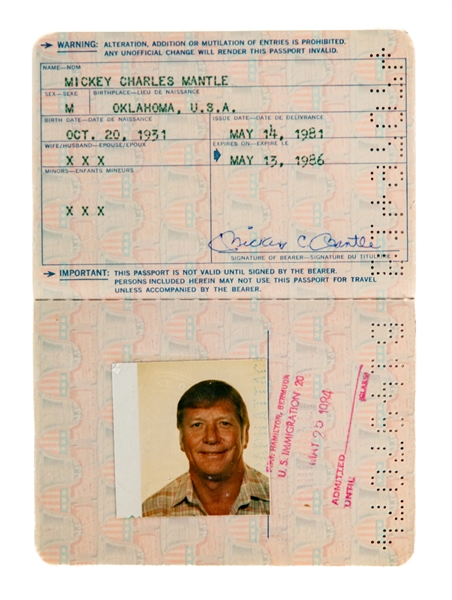 WARNING: ALTERATION, ADDITION OR MUTILATION OF ENTRIES IS PROHIBITED.
ANY UNOFFICIAL CHANGE WILL RENDER THIS PASSPORT INVALID.
NAME—NOM
MICKEY CHARLES MANTLE
SEX—SEXE BIRTHPLACE—LIEU DE NAISSANCE
M OKLAHOMA, U.S.A.
BIRTH DATE—DATE DE NAISSANCE ISSUE DATE—DATE DE DELIVRANCE
OCT. 20, 1931 MAY 14, 1981
WIFE/HUSBAND—EPOUSE/EPOUX EXPIRES ON—EXPIRE LE
X X X MAY 13, 1986
MINORS—ENFANTS MINEURS
X X X
Mickey C. Mantle
SIGNATURE OF BEARER—SIGNATURE DU TITULAIRE
IMPORTANT: THIS PASSPORT IS NOT VALID UNTIL SIGNED BY THE BEARER.
PERSONS INCLUDED HEREIN MAY NOT USE THIS PASSPORT FOR TRAVEL
UNLESS ACCOMPANIED BY THE BEARER.
HAMILTON, BERMUDA
U.S. IMMIGRATION 20
MAY 20 1984
ADMITTED
UNTIL
(CLASS)